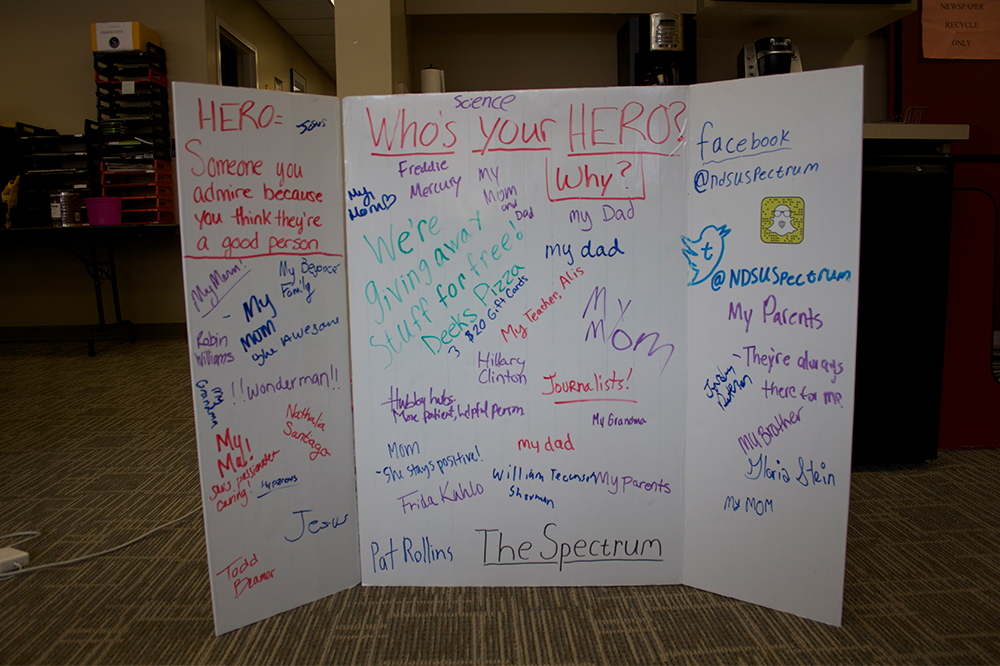 NEWSPAPER
RECYCLE
ONLY
HERO=
Jesus
Someone you
admire because
you think they're
a good person
My Mom!
My Beyonce
Family
- My
MOM
She Awesome
Robin
Williams
!!Wonderman!!
My
Grandma
Nathalia
Santiago
My
Ma!
She's passionate
caring!
My parents
Jesus
Todd
Beamer
Science
Who's your HERO?
Why?
Freddie
Mercury
My
Mom
My
Mom
and
Dad
my Dad
We're
giving away
stuff for free!
Deeks Pizza
3 $20 Gift Cards
my dad
My Teacher, Alis
My
Mom
Hillary
Clinton
Journalists!
Hubby hubs.
More patient, helpful person
My Grandma
Mom
- She stays positive!
my dad
William Tecumseh
Sherman
My Parents
Frida Kahlo
Pat Rollins
The Spectrum
facebook
@ndsuspectrum
t
@NDSUSpectrum
My Parents
- They're always
there for me
My Brother
Gloria Stein
My MOM